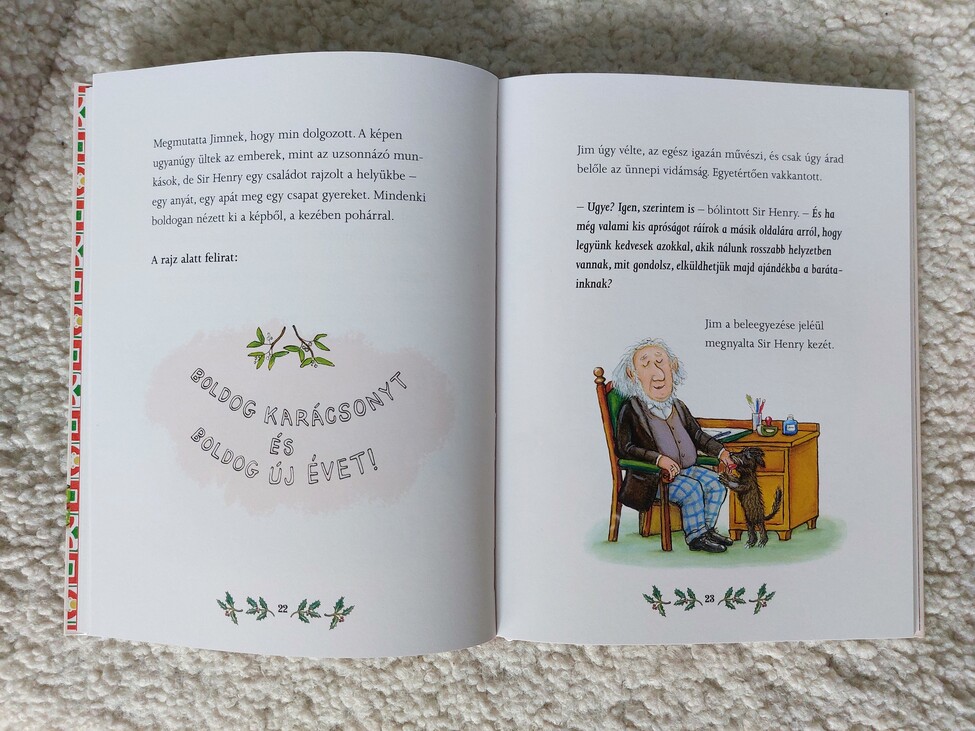 Megmutatta Jimnek, hogy min dolgozott. A képen
ugyanúgy ültek az emberek, mint az uzsonnázó mun-
kások, de Sir Henry egy családot rajzolt a helyükbe –
egy anyát, egy apát meg egy csapat gyereket. Mindenki
boldogan nézett ki a képből, a kezében pohárral.
A rajz alatt felirat:
BOLDOG KARÁCSONYT
ÉS
BOLDOG ÚJ ÉVET!
22
Jim úgy vélte, az egész igazán művészi, és csak úgy árad
belőle az ünnepi vidámság. Egyetértően vakkantott.
– Ugye? Igen, szerintem is – bólintott Sir Henry. – És ha
még valami kis apróságot ráírok a másik oldalára arról, hogy
legyünk kedvesek azokkal, akik nálunk rosszabb helyzetben
vannak, mit gondolsz, elküldhetjük majd ajándékba a baráta-
inknak?
Jim a beleegyezése jeléül
megnyalta Sir Henry kezét.
23